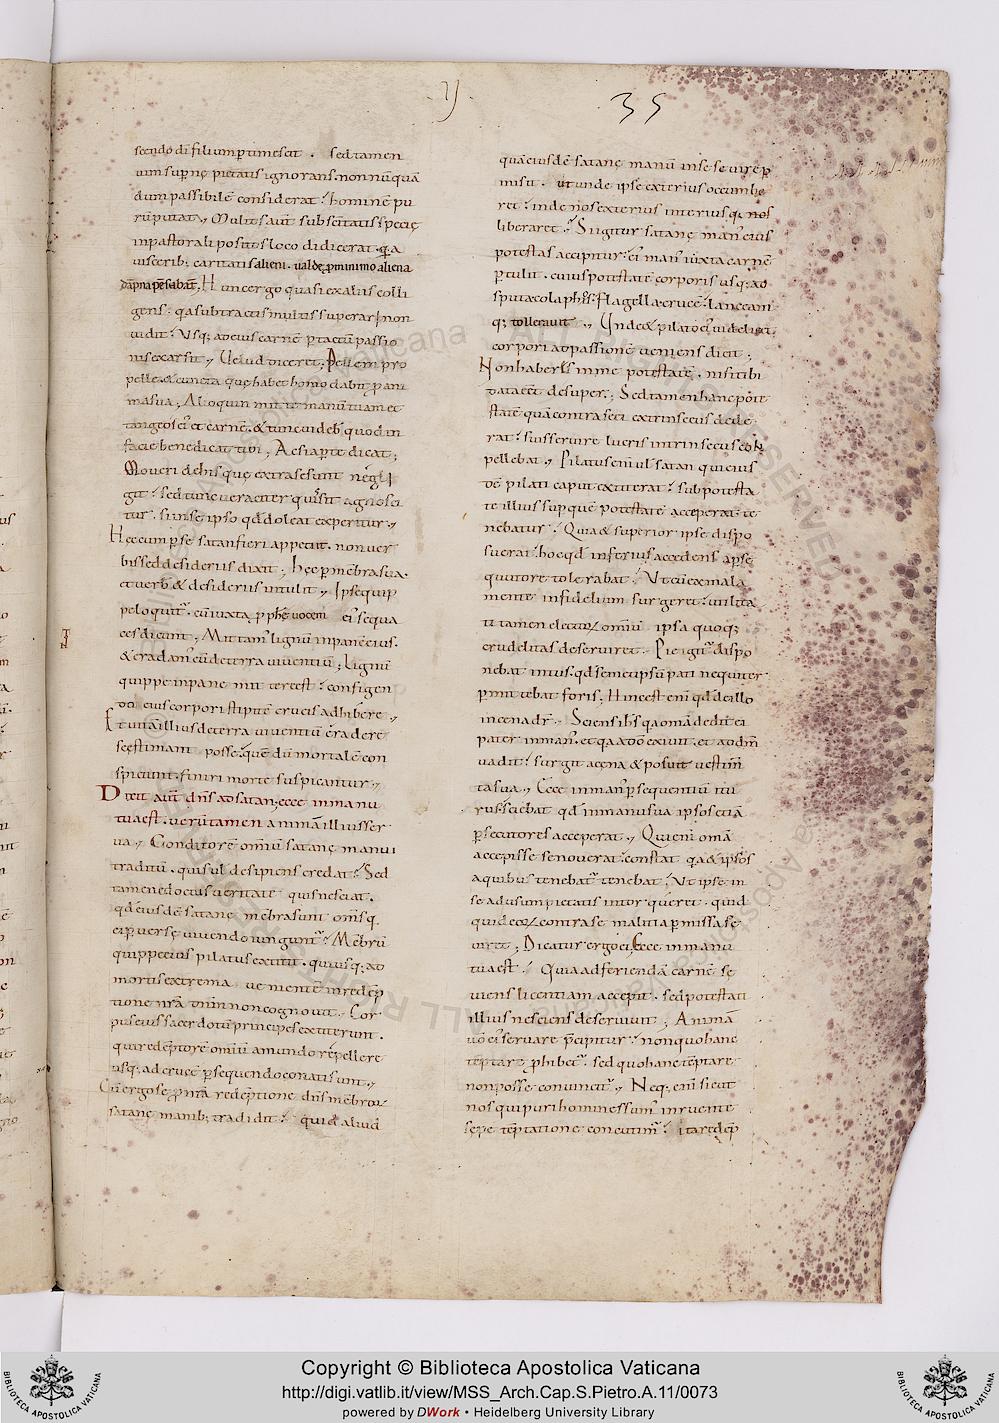 ·IJ·
35
secundo dm̄ filium ꝑtimescit . sed tamen
uim supernę pietatis ignorans . non nūquā
dum passibilē considerat . hominē pu
rū putat ; Multis aut̄ sub sc̄itatis specię
in pastorali positos loco didicerat . quia
uiscerib; caritatis alieni . ualde ꝓ minimo aliena
dāpna pensabant ; Hunc ergo quasi ex aliis colli
gens . quia subtractis multis superari non
uidit . Usq; ad eius carnē ꝑ tactum passio
nis exarsit ; Uelud diceret ; Pellem pro
pelle . & cuncta quę habet homo dabit ꝓ ani
ma sua ; Alioquin mitte manū tuam et
tange os ei & carnē . & tunc uideb quod in
facie benedicat tibi ; Ac si aperte dicat ;
Moueri de his quę extra se sunt negli
git . sed tunc ueraciter qui sit agnosci
tur . si in se ipso qđ doleat experitur ;
Hec eum ꝑ se satan fieri appetiit . non uer
bis sed desideriis dixit ; hęc ꝑ mēbra sua .
et uerbis & desideriis intulit ; Ipse quip
pe loquit̄ . cū iuxta ꝓphę̄ uocem ei sequa
ces dicunt ; Mittam lignū in pane eius .
& eradam eū de terra uiuentiū ; Lignū
quippe in pane mittere est . configen
do eius corpori stipitē crucis adhibere ;
Et uitā illius de terra uiuentiū eradere
se ęstimant posse . quē dū mortalē con
spiciunt . finiri morte suspicantur ;
Dixit aut̄ dn̄s ad satan ; ecce in manu
tua est . uerūtamen animā illius ser
ua ; Conditorē omiū satanę manui
traditū . quis uł desipiens credat ; Sed
tamen edoctus ueritate quis nesciat .
qđ eiusdē satanę mēbra sunt oms q̄
ei ꝑuersę uiuendo iungunt̄ ; Mēbrū
quippe eius pilatus extitit . qui usq; ad
mortis extrema uenientē in redēp
tione nr̄a dnm̄ non cognouit . Cor
pus eius sacerdotū principes extiterunt .
qui redēptorē omiū a mundo repellere
usq; ad crucē ꝑsequendo conati sunt ;
Cū ergo se ꝓ nr̄a redēptione dn̄s mēbroꝝ
satanę manib; tradidit . quid aliud
quā eiusdē satanę manū in se seuire ꝑ
misit . ut unde ipse exterius occumbe
ret . inde nos exterius interiusq; nos
liberaret ; Si igitur satanę man̄ eius
potestas accipitur . ei man̄ iuxta carnē
ꝑtulit . cuius potestatē corporis usq; ad
sputa colaphos . flagella crucē . lanceam
q; tollerauit ; Unde & pilato cū uidelicet
corpori ad passionē ueniens dicit ;
Non haberes in me potestatē . nisi tibi
data eet desuper ; Sed tamen hanc pote
statē quā contra se ei extrinsecus dede
rat . suis seruire lucris intrinsecus com
pellebat ; Pilatus enī uł satan qui eius
dē pilati caput extiterat . sub potesta
te illius sup quē potestatē acceperat te
nebatur . Quia & superior ipse dispo
suerat . hoc qđ inferius accedens a ꝑse
quutore tolerabat . Ut cū ex mala
mente infidelium surgeret . utilita
ti tamen electoꝝ omiū ipsa quoq;
crudelitas deseruiret . Pie igit̄ dispo
nebat intus . qđ semet ipsū pati nequiter
ꝑmittebat foris ; Hinc est enī qđ de illo
in cena dr̄ . Sciens ih̄s quia oma dedit ei
pater in man . et quia a dō exiuit . et ad dm̄
uadit . surgit a cena & posuit uestim̄
ta sua ; Ecce in man ꝑsequentiū itu
rus sciebat qđ in manu sua ipsos etiā
ꝑsecutores acceperat ; Qui enī omā
accepisse se nouerat . constat quia & ipsos
a quibus tenebat̄ tenebat . Ut ipse in
se ad usum pietatis intorqueret . quid
quid eoꝝ contra se malitia ꝑmissa se
uiret ; Dicatur ergo ei . Ecce in manu
tua est . Quia ad feriendā carnē se
uiens licentiam accepit . sed potestati
illius nesciens deseruiuit ; Animā
uō ei seruare p̄cipitur . non quo hanc
tēptare ꝓhibet̄ . sed quo hanc tēptare
non posse conuincit̄ ; Neq; enī sicut
nos qui puri homines sum̄ inruente
sepe tēptatione concutim̄ . ita redēp
Copyright © Biblioteca Apostolica Vaticana
http://digi.vatlib.it/view/MSS_Arch.Cap.S.Pietro.A.11/0073
powered by DWork • Heidelberg University Library
BIBLIOTECA APOSTOLICA VATICANA
BIBLIOTECA APOSTOLICA VATICANA